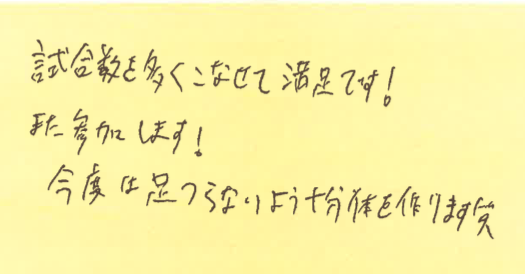 試合数を多くこなせて満足です!
また参加します!
今度は足つらないよう十分体を作ります笑